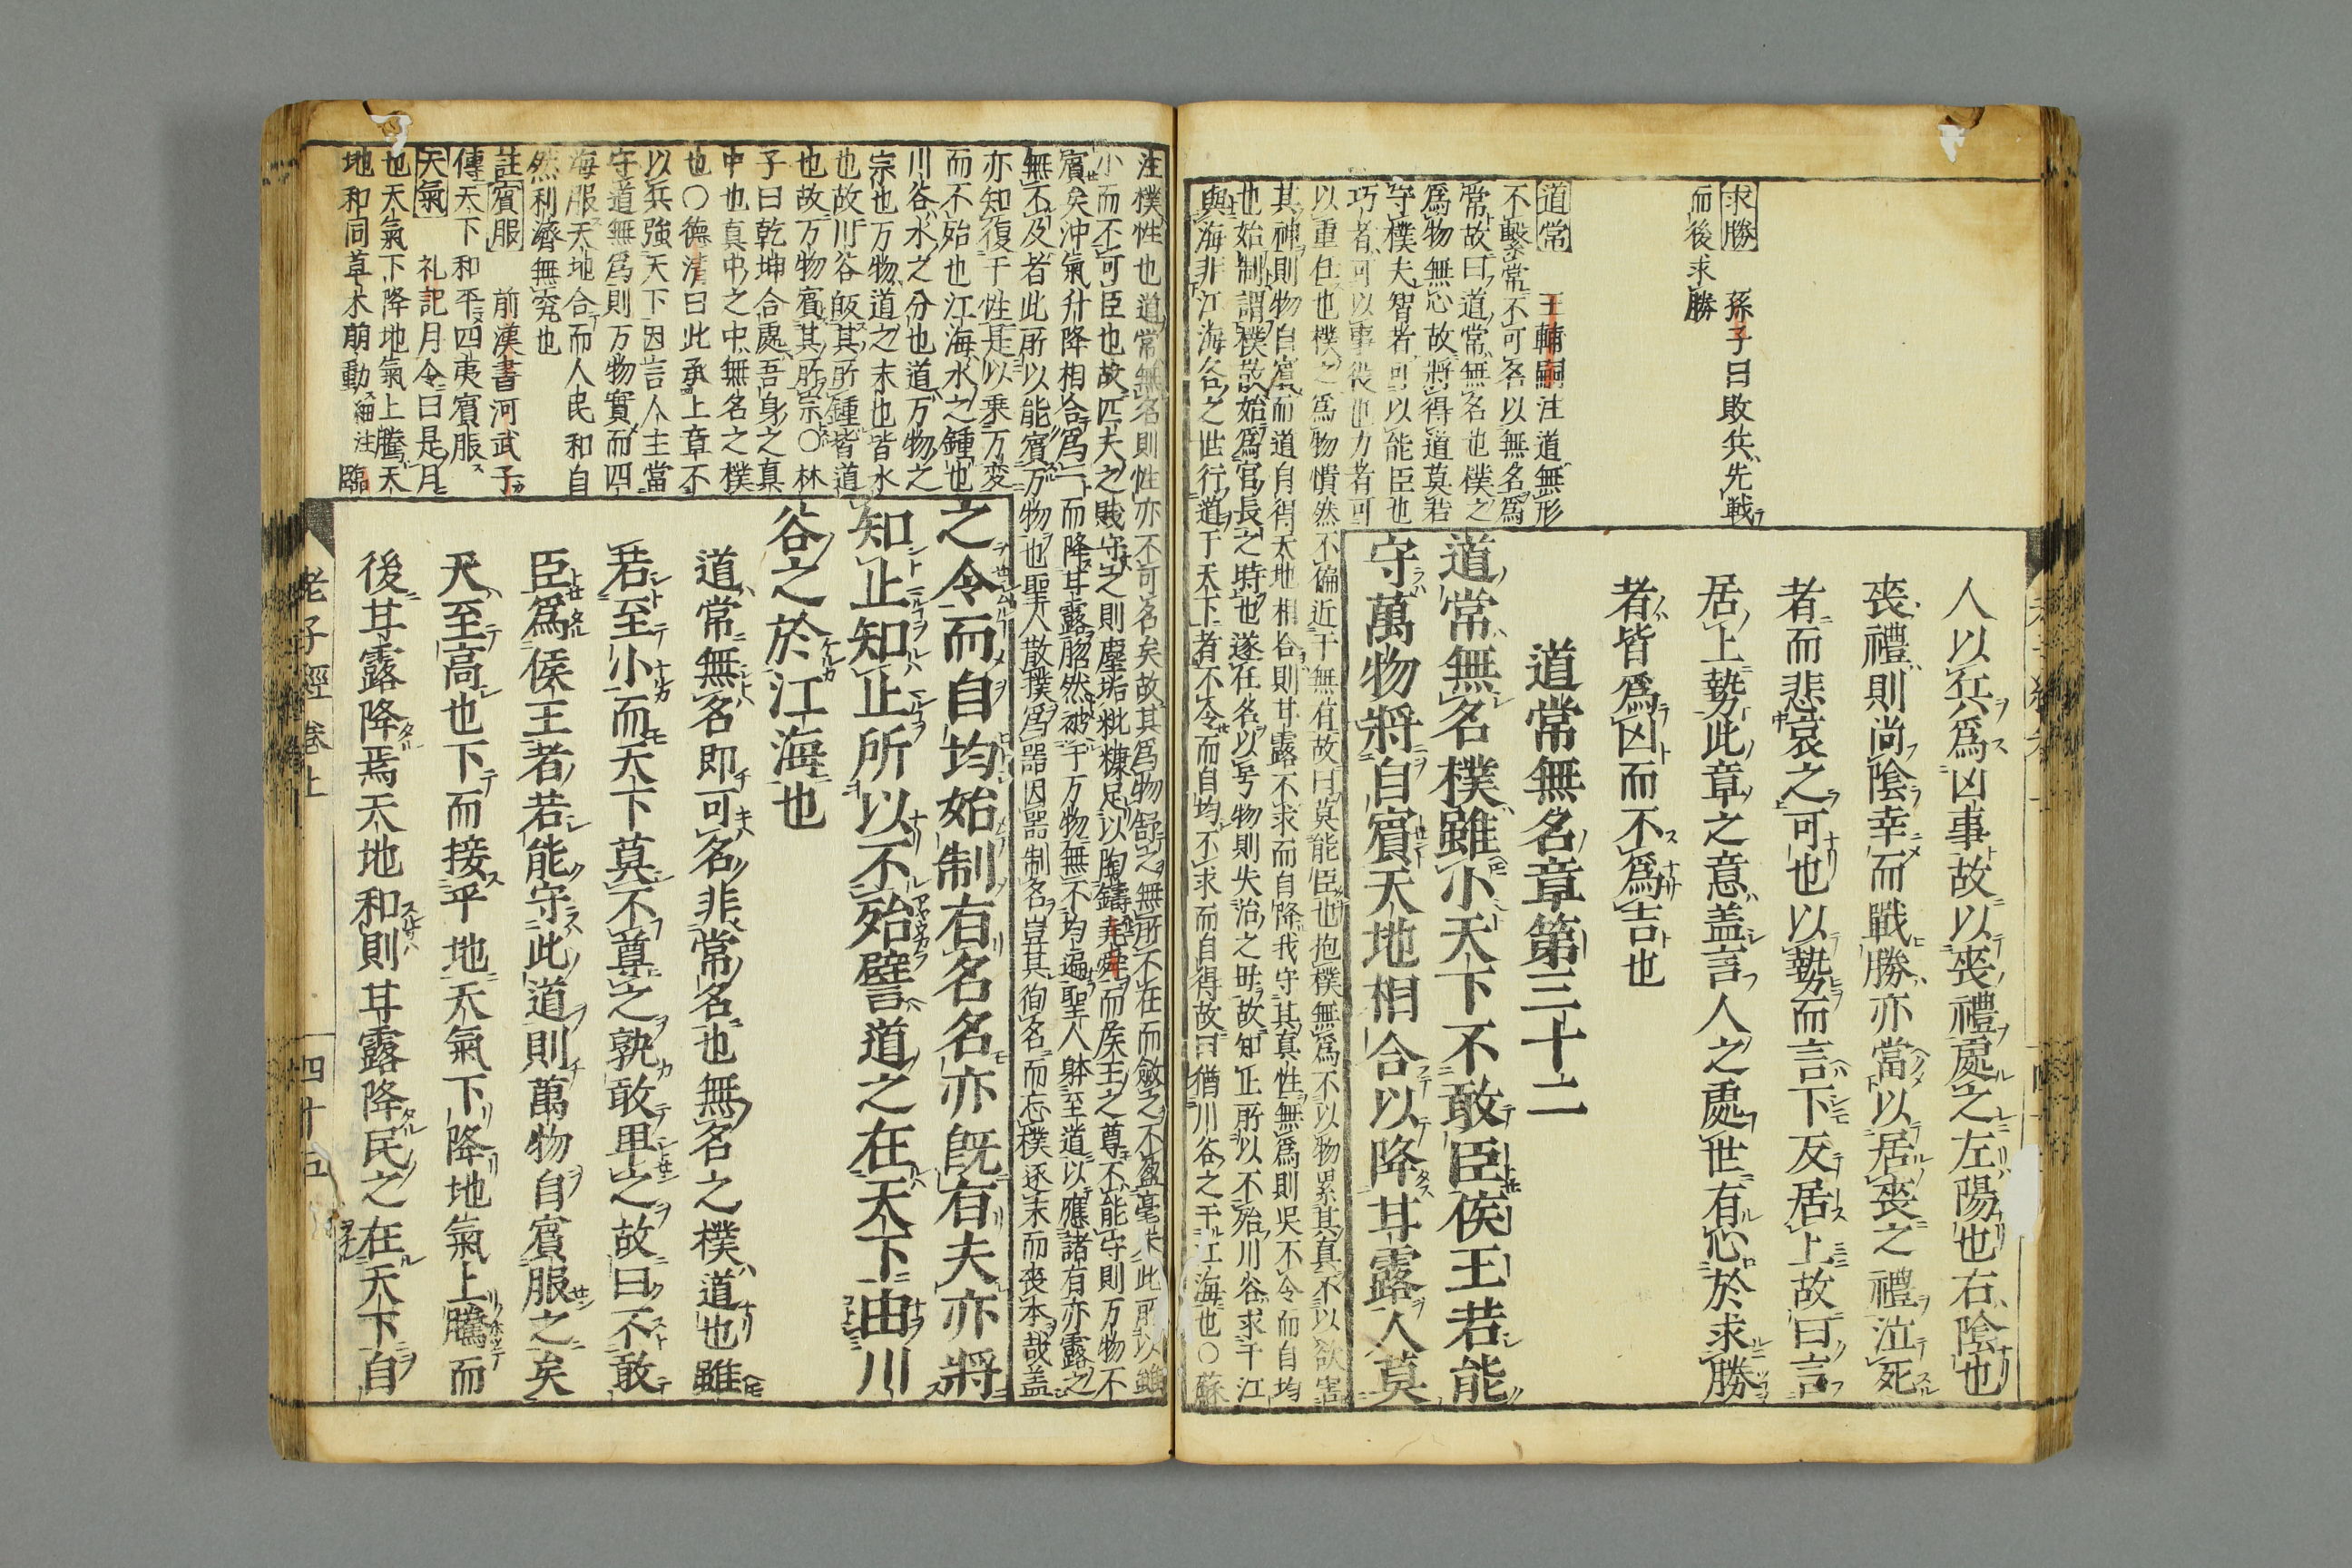 求勝 孫子曰敗兵先戰
而後求勝
人以兵爲凶事故以喪禮處之左陽也右陰也
喪禮則尚陰幸而戰勝亦當以居喪之禮泣死
者而悲哀之可也以勢而言下反居上故曰言
居上勢此章之意盖言人之處世有心於求勝
者皆爲凶而不爲吉也
道常無名章第三十二
道常無名樸雖小天下不敢臣侯王若能
守萬物將自賓天地相合以降甘露人莫
道常 王輔嗣注道無形
不繫常不可名以無名爲
常故曰道常無名也樸之
爲物無心故將得道莫若
守樸夫智者可以能臣也
巧者可以事役也力者可
以重任也樸之爲物憒然不偏近于無有故曰莫能臣也抱樸無爲不以物累其真不以欲害
其神則物自賓而道自得天地相合則甘露不求而自降我守其真性無爲則民不令而自均
也始制謂樸散始爲官長之時也遂任名以号物則失治之毋故知止所以不殆川谷求于江
與海非江海召之世行道于天下者不令而自均不求而自得故曰猶川谷之于江海也○蘇
注樸性也道常無名則性亦不可名矣故其爲物舒之無所不在而斂之不盈毫末此所以雖
小而不可臣也故匹夫之賤守之則塵垢粃糠足以陶鑄堯舜而侯王之尊不能守則万物不
賓矣沖氣升降相合爲一而降甘露脗然被于万物無不均遍聖人躰至道以應諸有亦露之
無不及者此所以能賓万物也聖人散樸爲器因器制名豈其徇名而忘樸逐末而喪本哉盖
亦知復于性是以乘万変
而不殆也江海水之鍾也
川谷水之分也道万物之
宗也万物道之末也皆水
也故川谷皈其所鍾皆道
也故万物賓其所宗○林
子曰乾坤合處吾身之真
中也真中之中無名之樸
也○德清曰此承上章不
以兵強天下因言人主當
守道無爲則万物賓而四
海服天地合而人民和自
然利濟無窮也
註賓服 前漢書河武子
傳天下和平四夷賓服
天氣 礼記月令曰是月
也天氣下降地氣上騰天
地和同草木萌動細注臨
之令而自均始制有名名亦旣有夫亦將
知止知止所以不殆譬道之在天下由川
谷之於江海也
道常無名即可名非常名也無名之樸道也雖
若至小而天下莫不尊之孰敢卑之故曰不敢
臣爲侯王者若能守此道則萬物自賓服之矣
天至高也下而接乎地天氣下降地氣上騰而
後甘露降焉天地和則甘露降民之在天下自
老子經卷上 四十五